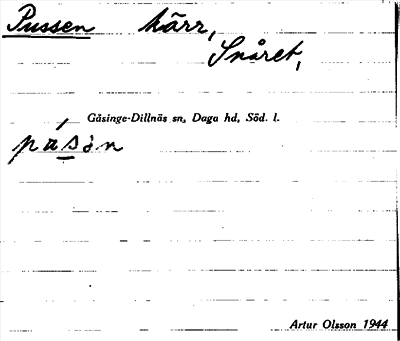 Pussen kärr,
Snåret,
Gåsinge-Dillnäs sn, Daga hd, Söd. l.
Artur Olsson 1944